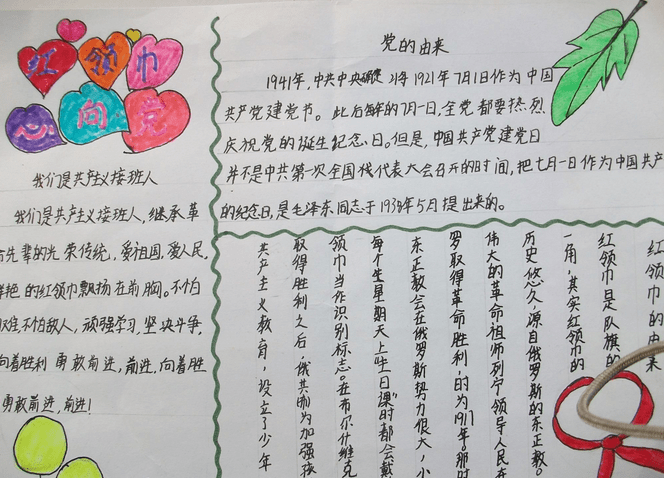 红领巾
心向党
我们是共产主义接班人
我们是共产主义接班人,继承革
先辈的光荣传统,爱祖国,爱人民,
艳的红领巾飘扬在前胸。不怕
难,不怕敌人,顽强学习,坚决斗争,
向着胜利 勇敢前进,前进,向着胜
勇敢前进,前进!
党的由来
1941年,中共中央确定将1921年7月1日作为中国
共产党建党节。此后每年的7月一日,全党都要热烈
庆祝党的诞生纪念日。但是,中国共产党建党日
并不是中共第一次全国代表大会召开的时间,把七月一日作为中国共产
的纪念日,是毛泽东同志于1938年5月提出来的。
红领巾的由来
红领巾是队旗的
一角,其实红领巾的
历史悠久源自俄罗斯的东正教。
伟大的革命祖师列宁领导人民在
罗取得革命胜利,时为1917年。那时
东正教会在俄罗斯势力很大,小
每个生星期天上“生日课”时都会戴
领巾当作识别标志。在布尔什维克
取得胜利之后,俄共为加强孩
共产主义教育,设立了少年